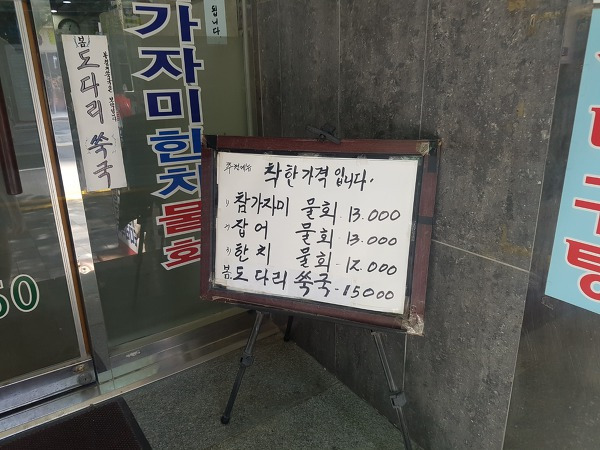 됩니다
가자미한치물회
봄
도다리 쑥국
착한가격입니다.
1) 참가자미 물회. 13.000
2) 잡어 물회. 13.000
3) 한치 물회. 12.000
봄 도다리 쑥국. 15000
구탕
50